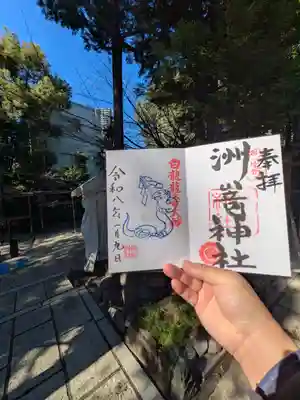 奉拝
洲崎神社
白龍龍寿大神
令和八年一月九日